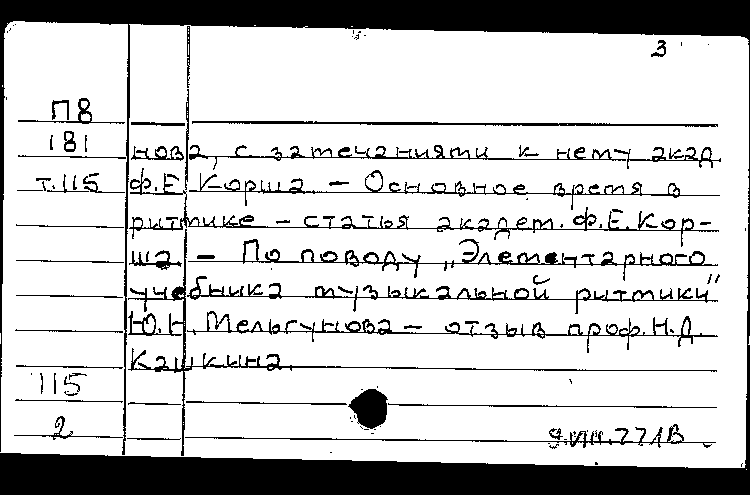 3
П8
181
т.115
нова, с замечаниями к нему акад.
Ф.Е. Корша. — Основное время в
ритмике — статья академ. Ф.Е. Кор-
ша. — По поводу „Элементарного
учебника музыкальной ритмики"
Ю.Н. Мельгунова — отзыв проф. Н.Д.
Кашкина.
115
2